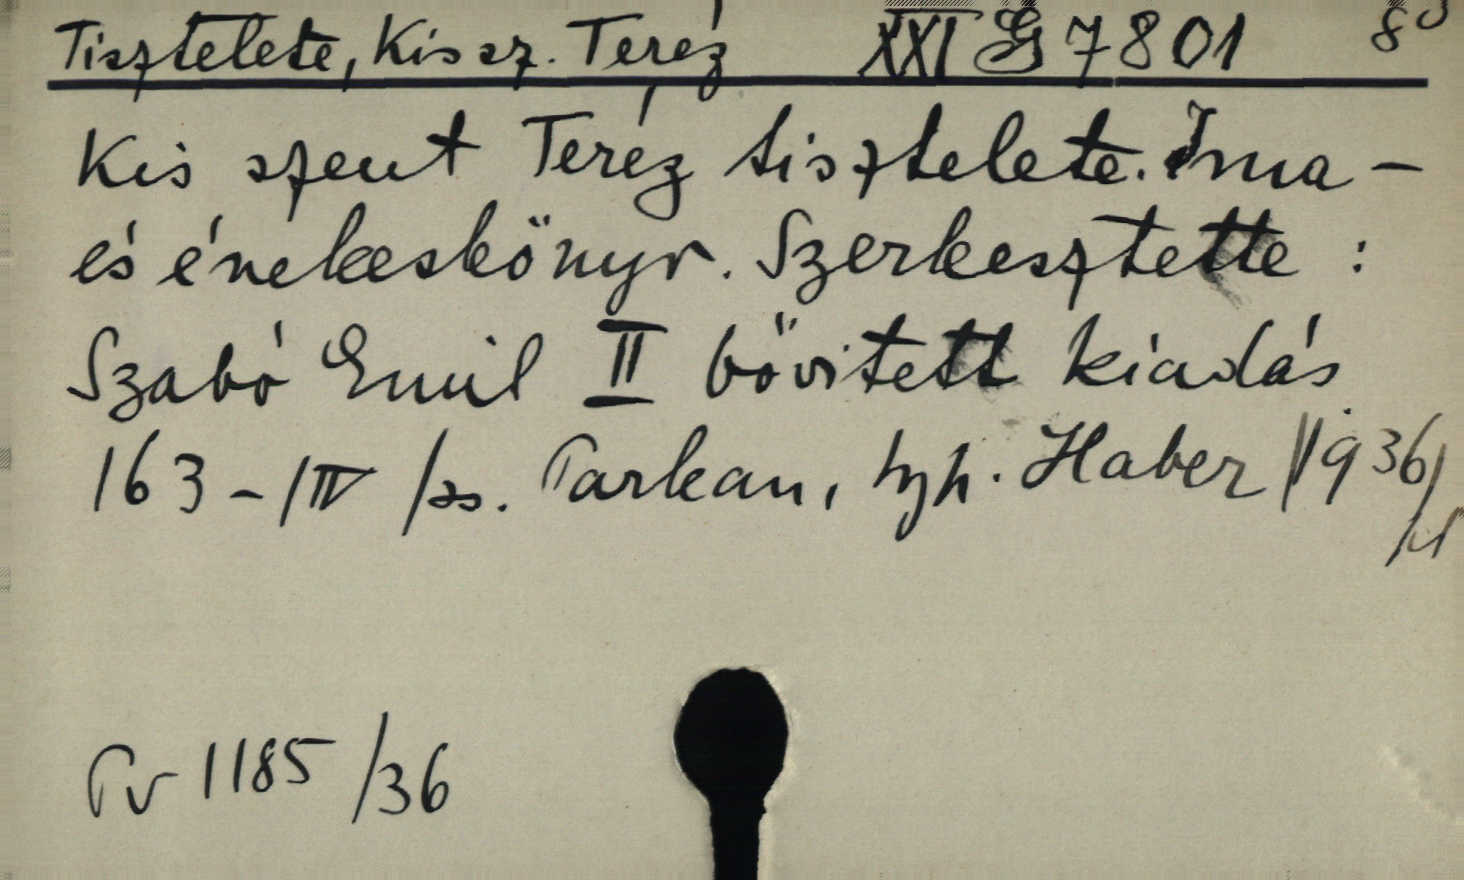 Tisztelete, Kis sz. Teréz XXI G 7801 8°
Kis szent Teréz tisztelete. Ima-
és énekeskönyv. Szerkesztette :
Szabó Emil II bővitett kiadás
163-/IV /ss. Tarkan, tyh. Haber /1936/
Pv 1185/36